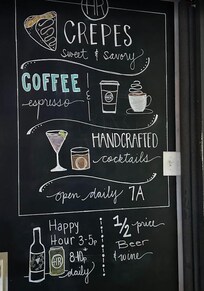 HR
CREPES
sweet & savory
COFFEE &
espresso
HANDCRAFTED
cocktails
open daily 7A
Happy
Hour 3-5p
8-10p
daily
1/2-price
Beer
& wine
HR